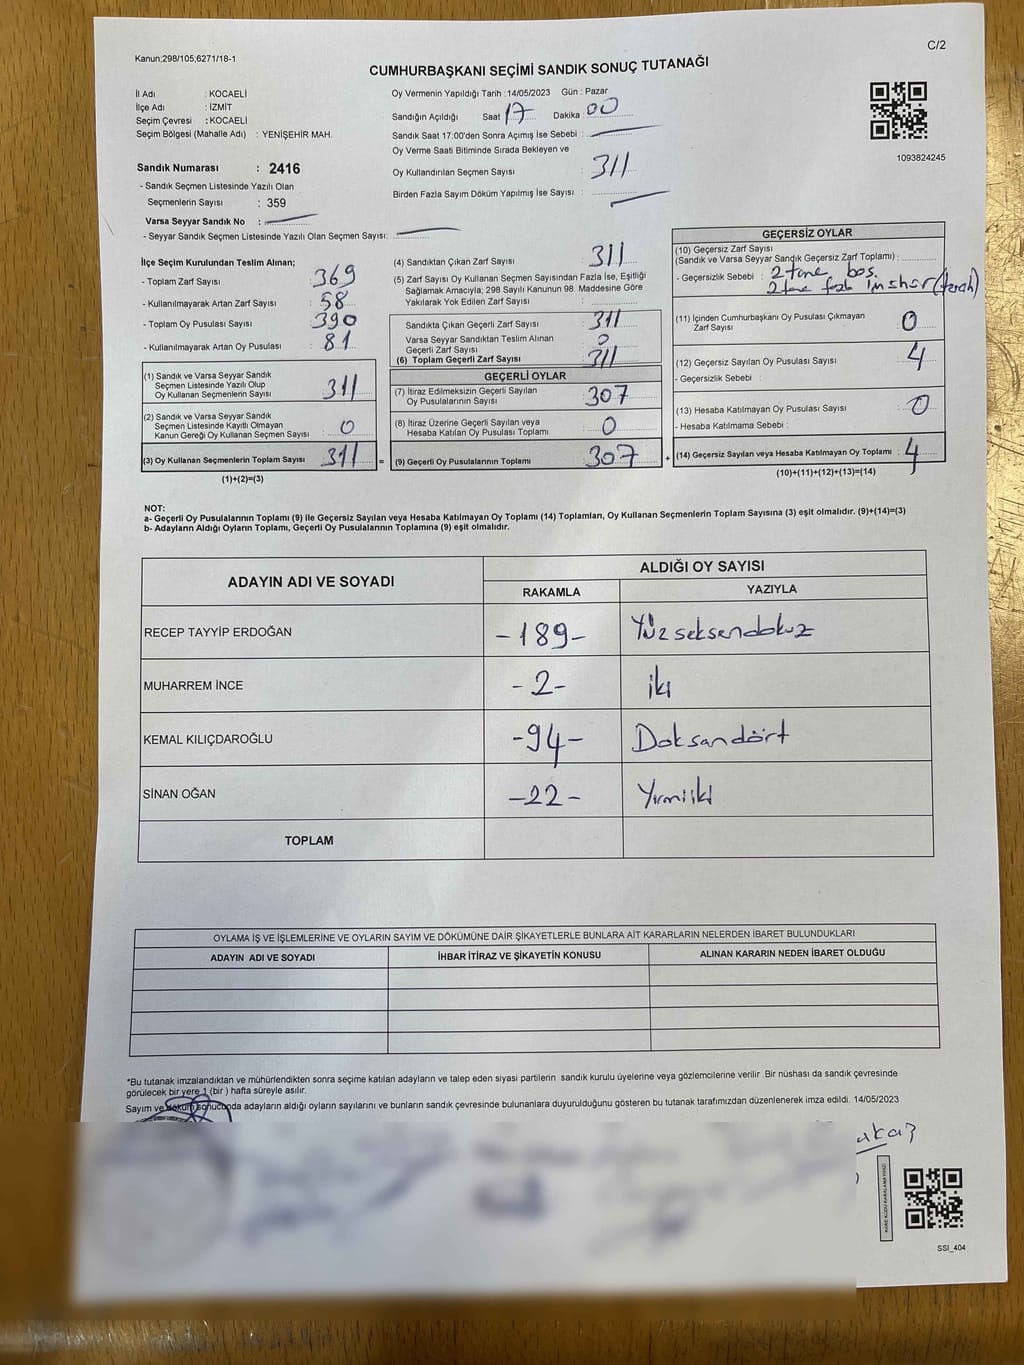 Kanun;298/105;6271/18-1
C/2
CUMHURBAŞKANI SEÇİMİ SANDIK SONUÇ TUTANAĞI
İl Adı : KOCAELİ
İlçe Adı : İZMİT
Seçim Çevresi : KOCAELİ
Seçim Bölgesi (Mahalle Adı) : YENİŞEHİR MAH.
Sandık Numarası : 2416
- Sandık Seçmen Listesinde Yazılı Olan
Seçmenlerin Sayısı : 359
Varsa Seyyar Sandık No :
- Seyyar Sandık Seçmen Listesinde Yazılı Olan Seçmen Sayısı:
Oy Vermenin Yapıldığı Tarih : 14/05/2023 Gün : Pazar
Sandığın Açıldığı Saat 17 Dakika : 00
Sandık Saat 17:00'den Sonra Açımış İse Sebebi :
Oy Verme Saati Bitiminde Sırada Bekleyen ve
Oy Kullandırılan Seçmen Sayısı : 311
Birden Fazla Sayım Döküm Yapılmış İse Sayısı :
1093824245
İlçe Seçim Kurulundan Teslim Alınan;
- Toplam Zarf Sayısı : 369
- Kullanılmayarak Artan Zarf Sayısı : 58
- Toplam Oy Pusulası Sayısı : 390
- Kullanılmayarak Artan Oy Pusulası : 81
(1) Sandık ve Varsa Seyyar Sandık
Seçmen Listesinde Yazılı Olup
Oy Kullanan Seçmenlerin Sayısı : 311
(2) Sandık ve Varsa Seyyar Sandık
Seçmen Listesinde Kayıtlı Olmayan
Kanun Gereği Oy Kullanan Seçmen Sayısı : 0
(3) Oy Kullanan Seçmenlerin Toplam Sayısı : 311 =
(1)+(2)=(3)
(4) Sandıktan Çıkan Zarf Sayısı : 311
(5) Zarf Sayısı Oy Kullanan Seçmen Sayısından Fazla İse, Eşitliği
Sağlamak Amacıyla; 298 Sayılı Kanunun 98. Maddesine Göre
Yakılarak Yok Edilen Zarf Sayısı :
Sandıkta Çıkan Geçerli Zarf Sayısı : 311
Varsa Seyyar Sandıktan Teslim Alınan
Geçerli Zarf Sayısı : 0
(6) Toplam Geçerli Zarf Sayısı : 311
GEÇERLİ OYLAR
(7) İtiraz Edilmeksizin Geçerli Sayılan
Oy Pusulalarının Sayısı : 307
(8) İtiraz Üzerine Geçerli Sayılan veya
Hesaba Katılan Oy Pusulası Toplamı : 0
(9) Geçerli Oy Pusulalarının Toplamı : 307 +
GEÇERSİZ OYLAR
(10) Geçersiz Zarf Sayısı
(Sandık ve Varsa Seyyar Sandık Geçersiz Zarf Toplamı) :
- Geçersizlik Sebebi : 2 tane boş.
2 tane fazla
(11) İçinden Cumhurbaşkanı Oy Pusulası Çıkmayan
Zarf Sayısı : 0
(12) Geçersiz Sayılan Oy Pusulası Sayısı : 4
- Geçersizlik Sebebi :
(13) Hesaba Katılmayan Oy Pusulası Sayısı : 0
- Hesaba Katılmama Sebebi :
(14) Geçersiz Sayılan veya Hesaba Katılmayan Oy Toplamı : 4
(10)+(11)+(12)+(13)=(14)
NOT:
a- Geçerli Oy Pusulalarının Toplamı (9) ile Geçersiz Sayılan veya Hesaba Katılmayan Oy Toplamı (14) Toplamları, Oy Kullanan Seçmenlerin Toplam Sayısına (3) eşit olmalıdır. (9)+(14)=(3)
b- Adayların Aldığı Oyların Toplamı, Geçerli Oy Pusulalarının Toplamına (9) eşit olmalıdır.
ADAYIN ADI VE SOYADI
ALDIĞI OY SAYISI
RAKAMLA YAZIYLA
RECEP TAYYİP ERDOĞAN -189- Yüzseksendokuz
MUHARREM İNCE -2- iki
KEMAL KILIÇDAROĞLU -94- Doksandört
SİNAN OĞAN -22- Yirmiiki
TOPLAM
OYLAMA İŞ VE İŞLEMLERİNE VE OYLARIN SAYIM VE DÖKÜMÜNE DAİR ŞİKAYETLERLE BUNLARA AİT KARARLARIN NELERDEN İBARET BULUNDUKLARI
ADAYIN ADI VE SOYADI İHBAR İTİRAZ VE ŞİKAYETİN KONUSU ALINAN KARARIN NEDEN İBARET OLDUĞU
*Bu tutanak imzalandıktan ve mühürlendikten sonra seçime katılan adayların ve talep eden siyasi partilerin sandık kurulu üyelerine veya gözlemcilerine verilir .Bir nüshası da sandık çevresinde
görülecek bir yere 1 (bir ) hafta süreyle asılır.
Sayım ve döküm sonucunda adayların aldığı oyların sayılarını ve bunların sandık çevresinde bulunanlara duyurulduğunu gösteren bu tutanak tarafımızdan düzenlenerek imza edildi. 14/05/2023
KARE KODU KARALAMAYINIZ!
SSI_404